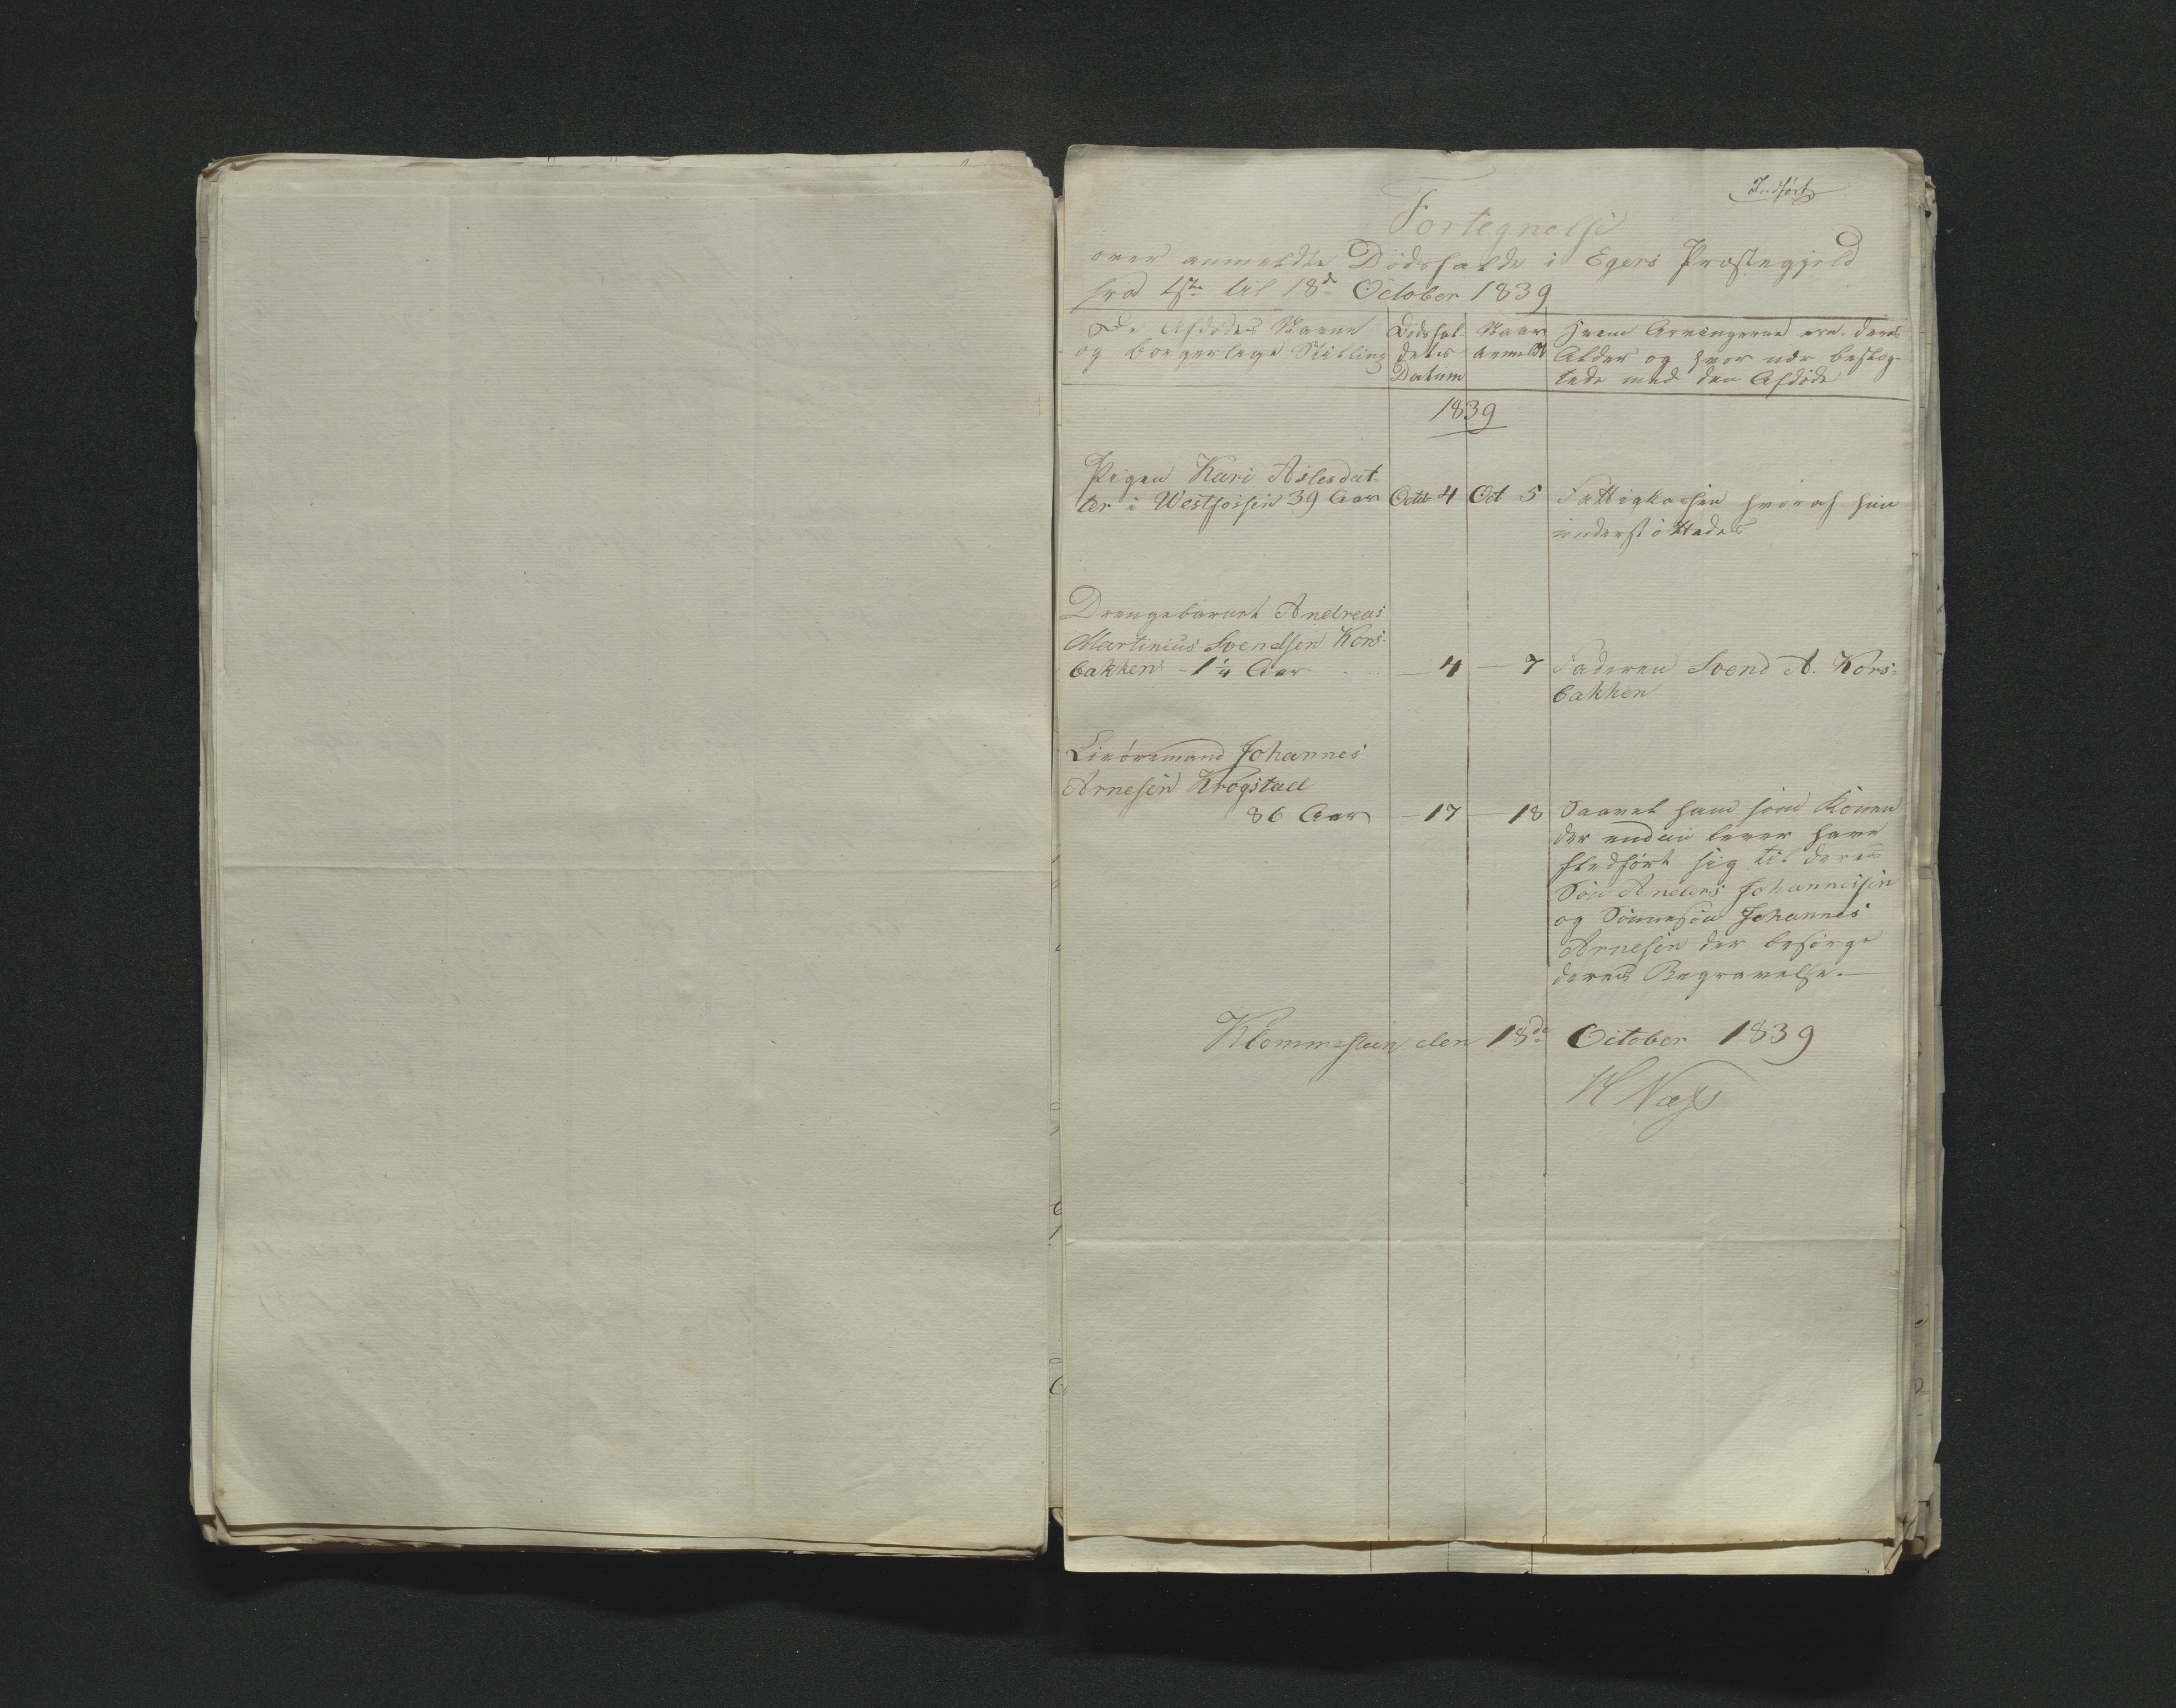 Indført
Fortegnelse
over anmeldte Dødsfalde i Egers Præstegjeld
fra 1ste til 18de October 1839
De Afdødes Navne
og borgerlige Stilling
Dødsfal-
dets
Datum
Naar
anmeldt
Hvem Arvingerne ere, deres
Alder og hvor nær beslæg-
tede med den Afdøde
1839
Pigen Kari Aslesdat-
ter i Westfossen 39 Aar Octbr 4 Oct 5 Fattigkassen hvoraf hun
understöttedes
Drengebarnet Andreas
Martinius Svendsen Kors-
bakken - 1 1/4 Aar — 4 — 7 Faderen Svend A. Kors-
bakken
Livöremand Johannes
Arnesen Krogstad
86 Aar — 17 — 18 Saavel ham som Konen
der endnu lever have
fledført sig til deres
Søn Anders Johannessen
og Sønnesøn Johannes
Arnesen der besørge
deres Begravelse.—
Klommesteen den 18de October 1839
H Næss